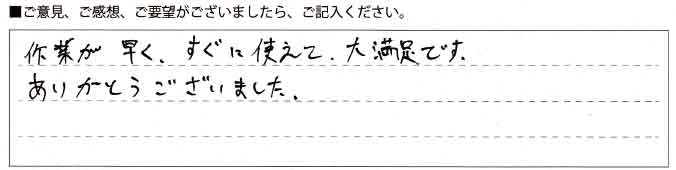 ■ご意見、ご感想、ご要望がございましたら、ご記入ください。
作業が早く、すぐに使えて、大満足です。
ありがとうございました。